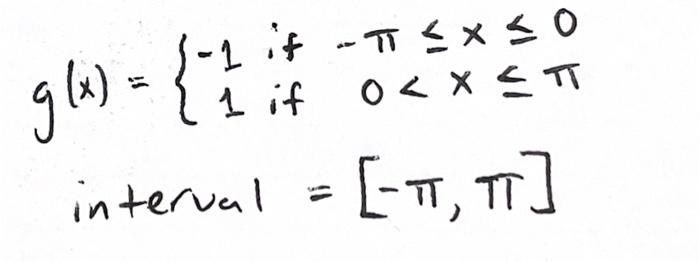 g(x) = { -1 if -π ≤ x ≤ 0
1 if 0 < x ≤ π
interval = [-π, π]